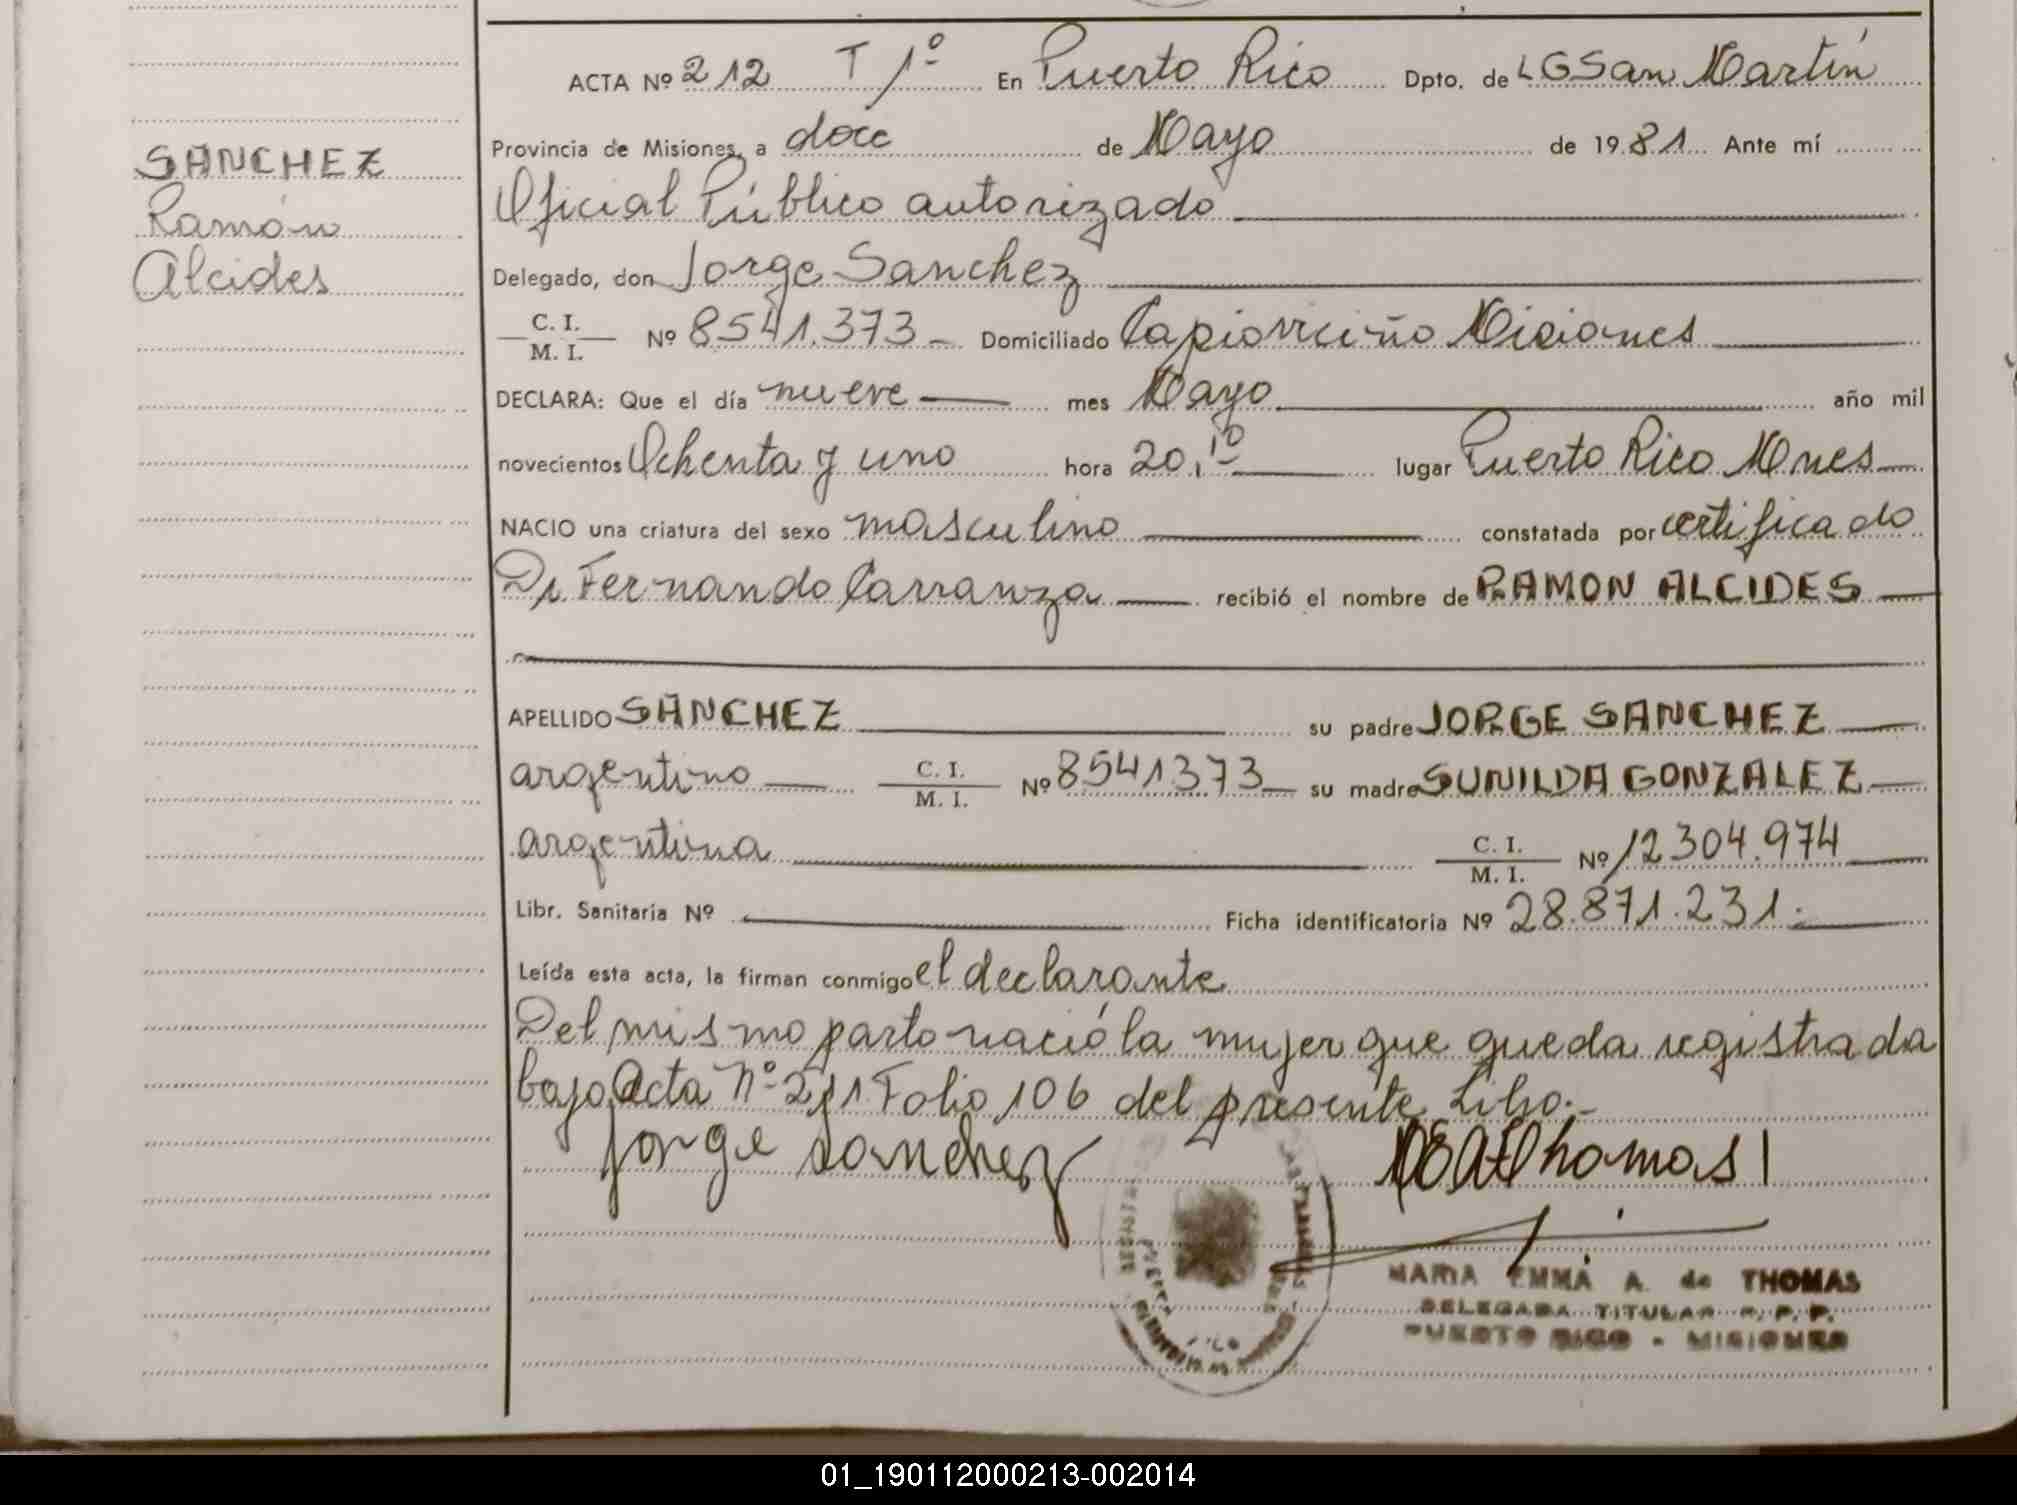 ACTA Nº 212 T 1º En Puerto Rico Dpto. de LGSan Martín
Provincia de Misiones, a doce de Mayo de 1981 Ante mí
Oficial Público autorizado
Delegado, don Jorge Sanchez
C. I.
M. I.
Nº 8541.373 Domiciliado Misiones
DECLARA: Que el día nueve mes Mayo año mil
novecientos Ochenta y uno hora 20,10 lugar Puerto Rico Mnes
NACIO una criatura del sexo masculino constatada por certificado
Dr. Fernando Carranza recibió el nombre de RAMON ALCIDES
APELLIDO SANCHEZ su padre JORGE SANCHEZ
argentino C. I.
M. I.
Nº 8541373 su madre SUNILDA GONZALEZ
argentina C. I.
M. I.
Nº 12304.974
Libr. Sanitaria Nº Ficha identificatoria Nº 28.871.231.
Leída esta acta, la firman conmigo el declarante
Del mismo parto nació la mujer que queda registrada
bajo Acta Nº 211 Folio 106 del presente Libro.-
Jorge Sanchez
MEAThomas
MARIA EMMA A. de THOMAS
DELEGADA TITULAR R. P. P.
PUERTO RICO - MISIONES
SANCHEZ
Ramón
Alcides
01_190112000213-002014